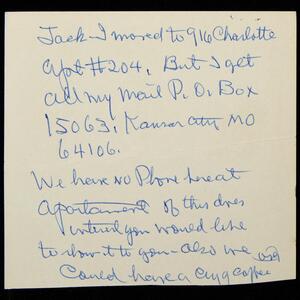 Jack-I moved to 916 Charlotte
Apt #204. But I get
all my Mail P.O. Box
15063, Kansas City MO
64106.
We have no Phone here at
Apartament of this does
interest you would like
to show it to you-also we
Could have a cup a coffee